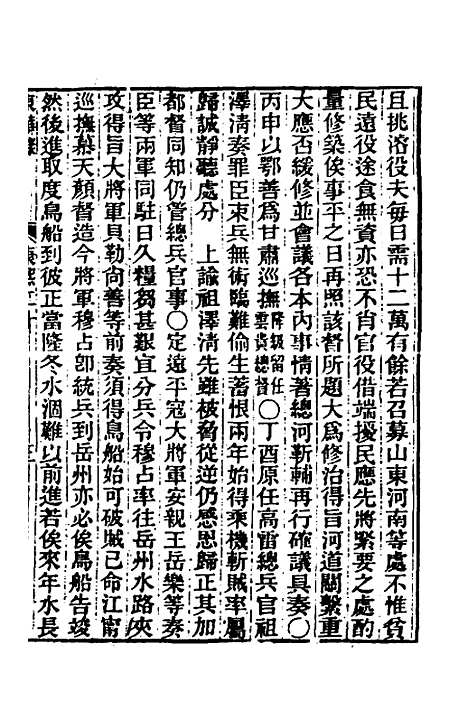 且挑濬役夫每日需十二萬有餘若召募山東河南等處不惟貧
民遠役途食無資亦恐不肖官役借端擾民應先將緊要之處酌
量修築俟事平之日再照該督所題大為修治得旨河道關繫重
大應否緩修並會議各本內事情著總河靳輔再行確議具奏○
丙申以鄂善為甘肅巡撫降級留任雲貴總督○丁酉原任高雷總兵官祖
澤清奏罪臣束兵無術臨難偷生蓄恨兩年始得乘機斬賊率屬
歸誠靜聽處分　上諭祖澤清先雖被脅從逆仍感恩歸正其加
都督同知仍管總兵官事○定遠平寇大將軍安親王岳樂等奏
臣等兩軍同駐日久糧芻甚艱宜分兵令穆占率往岳州水路夾
攻得旨大將軍貝勒尚善等前奏須得鳥船始可破賊已命江甯
巡撫慕天顏督造今將軍穆占卽統兵到岳州亦必俟鳥船告竣
然後進取度鳥船到彼正當隆冬水涸難以前進若俟來年水長